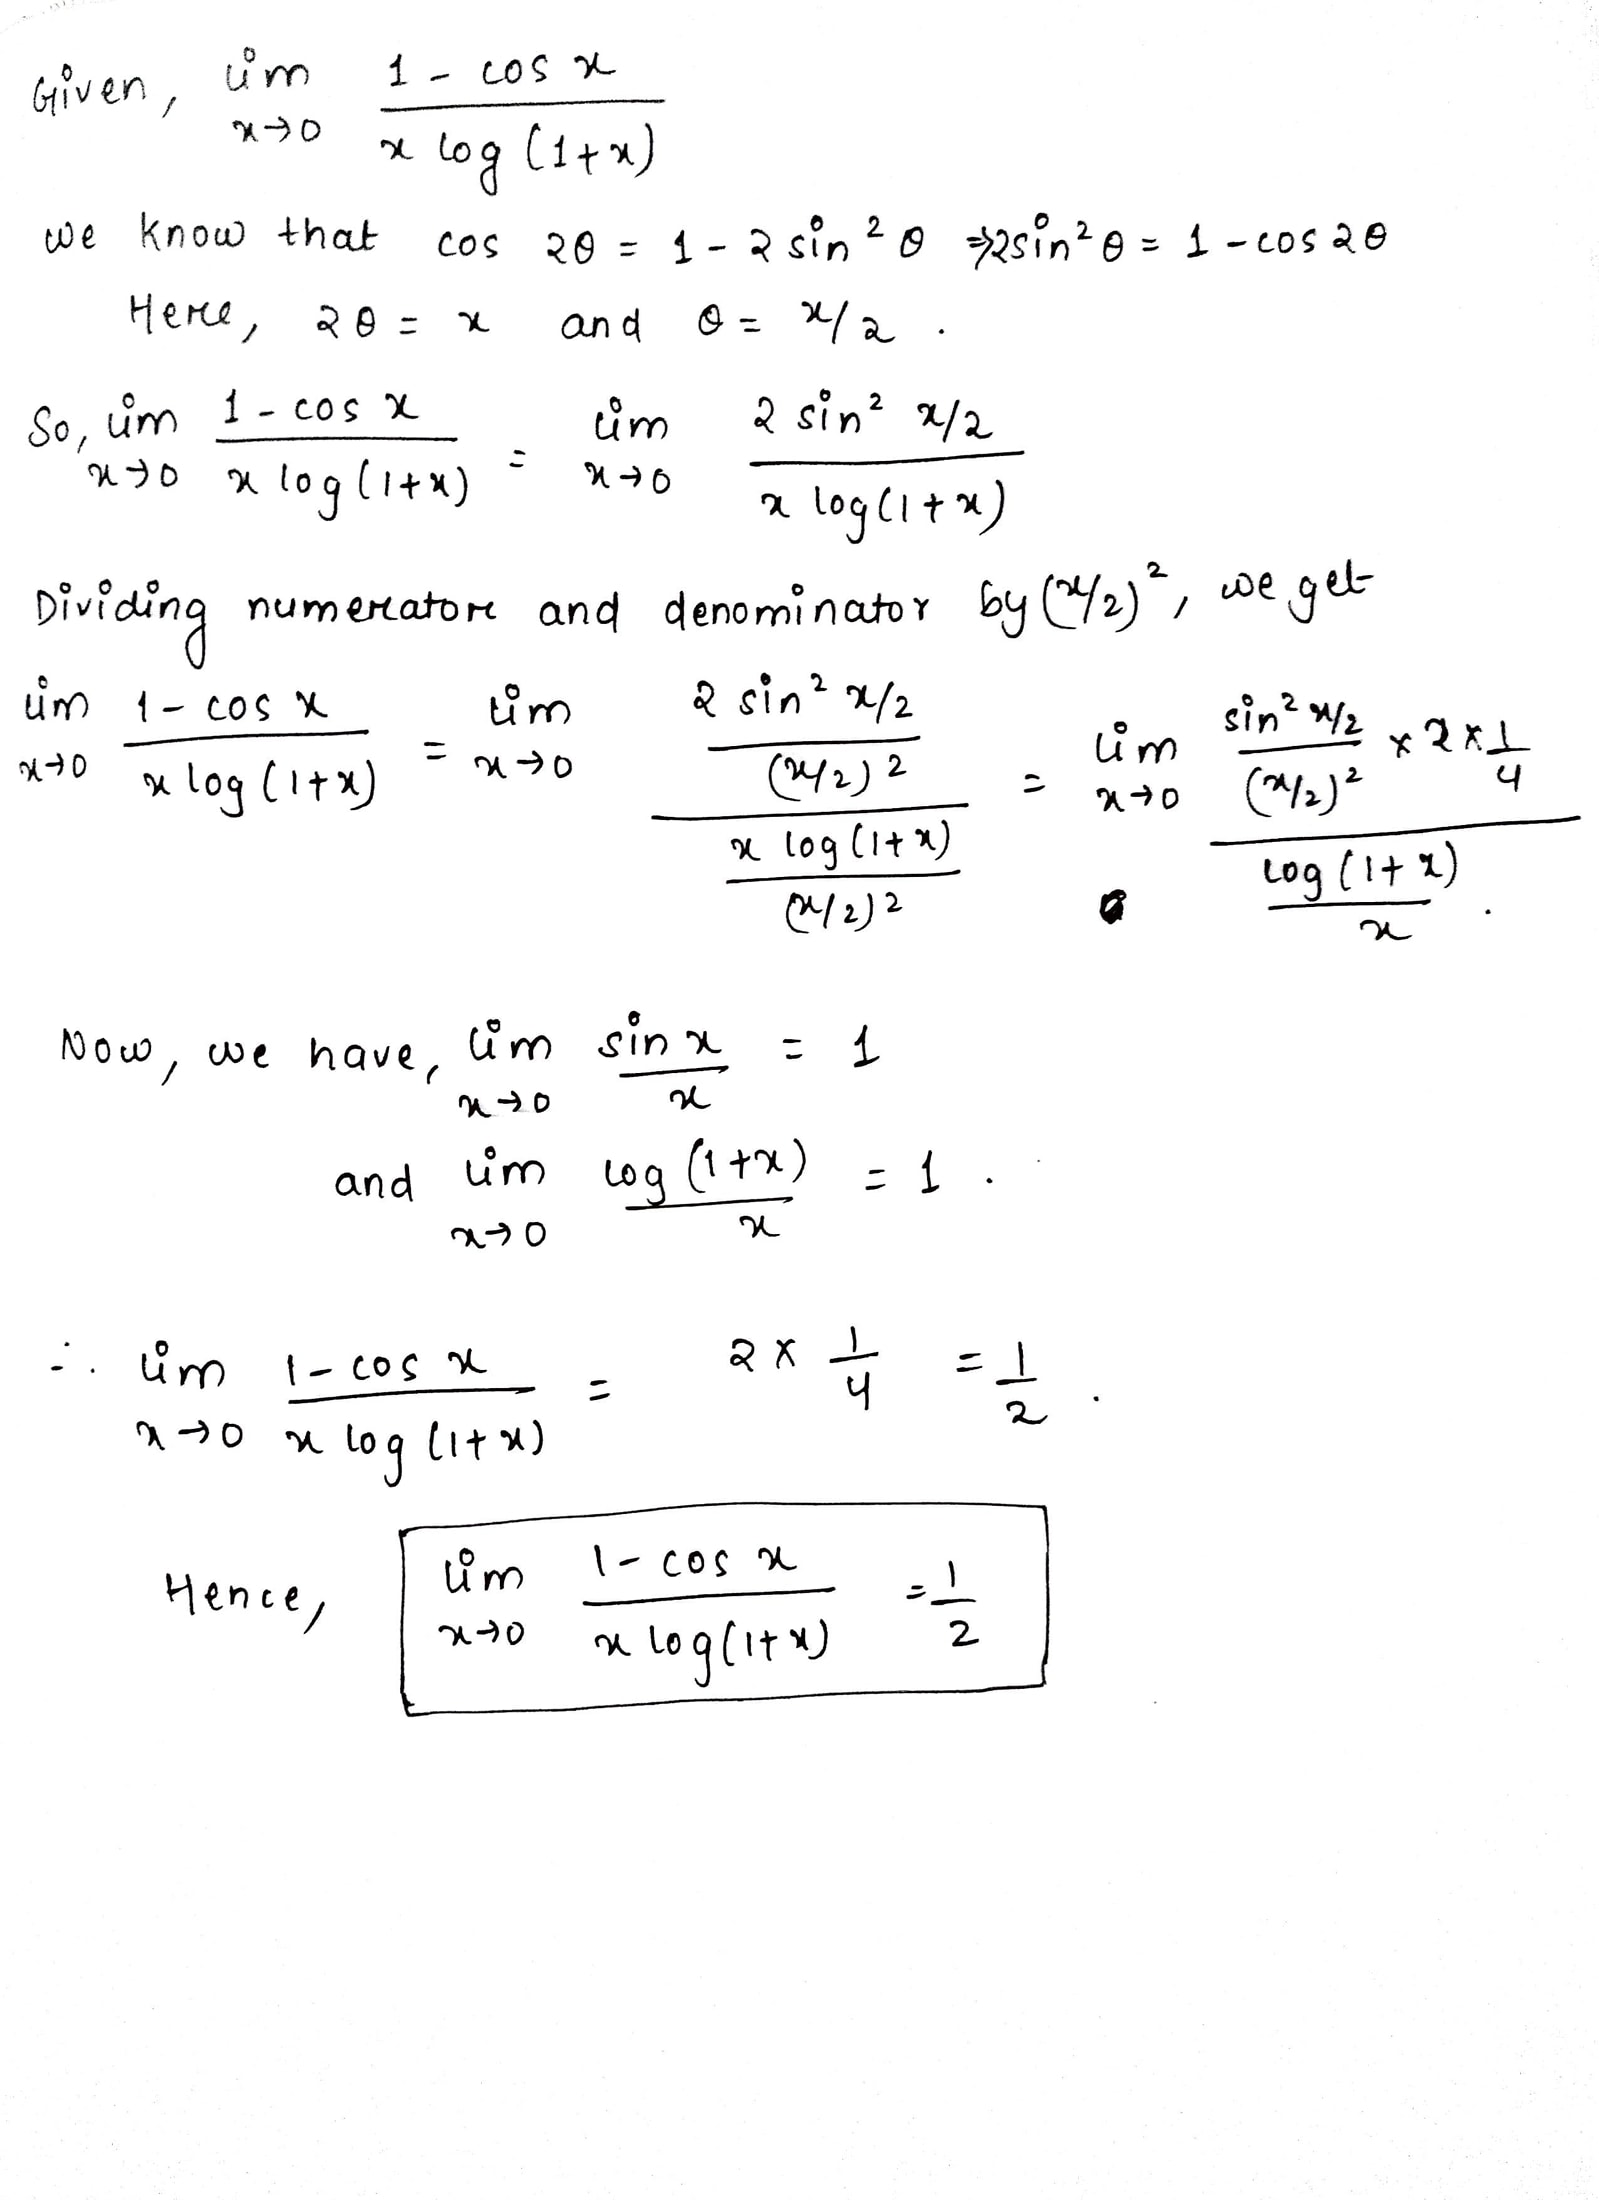 Given, lim x→0 (1 - cos x) / (x log (1+x))
we know that cos 2θ = 1 - 2 sin² θ ⇒ 2sin² θ = 1 - cos 2θ
Here, 2θ = x and θ = x/2 .
So, lim x→0 (1 - cos x) / (x log(1+x)) = lim x→0 (2 sin² x/2) / (x log(1+x))
Dividing numerator and denominator by (x/2)², we get
lim x→0 (1 - cos x) / (x log (1+x)) = lim x→0 ((2 sin² x/2) / (x/2)²) / ((x log (1+x)) / (x/2)²) = lim x→0 ((sin² x/2) / (x/2)² × 2 × 1/4) / ((log (1+x)) / x) .
Now, we have, lim x→0 (sin x) / x = 1
and lim x→0 (log (1+x)) / x = 1 .
∴ lim x→0 (1 - cos x) / (x log (1+x)) = 2 × 1/4 = 1/2 .
Hence, lim x→0 (1 - cos x) / (x log(1+x)) = 1/2